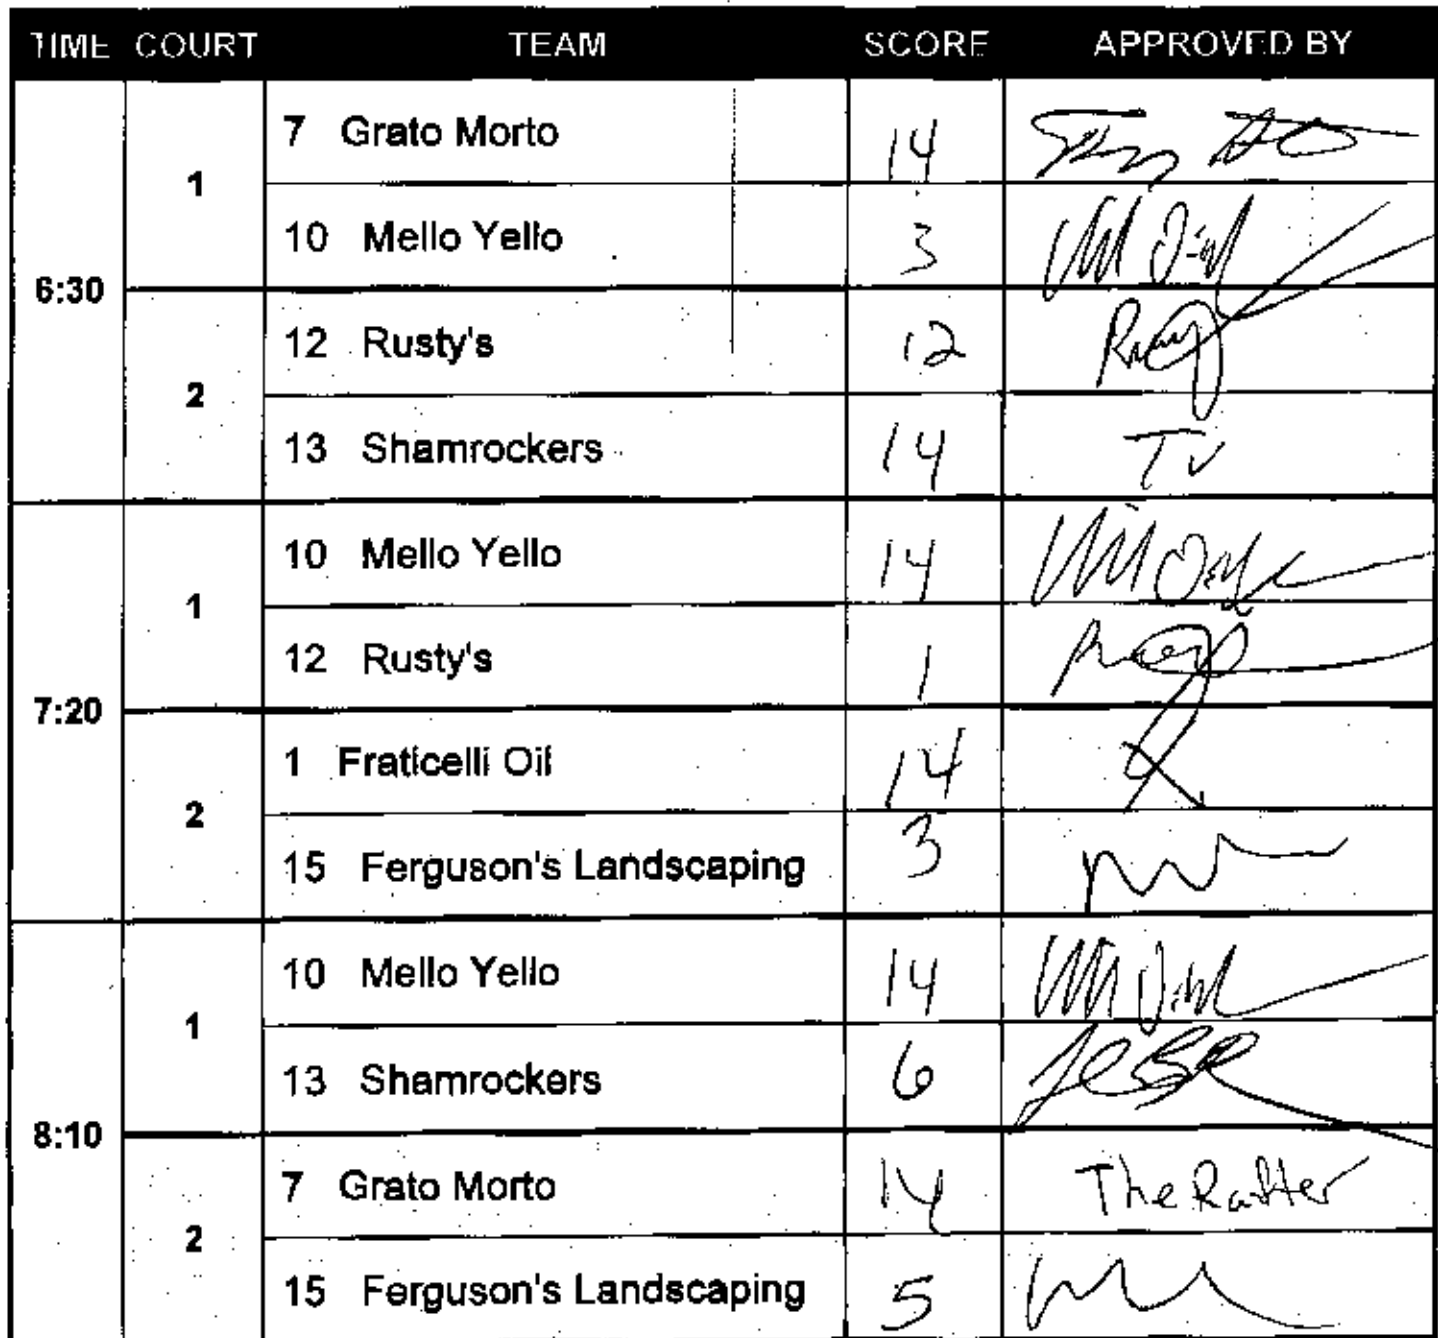 TIME COURT TEAM SCORE APPROVED BY
7 Grato Morto 14
1
10 Mello Yello 3
6:30
12 Rusty's 12
2
13 Shamrockers 14 TV
10 Mello Yello 14
1
12 Rusty's 1
7:20
1 Fraticelli Oil 14
2
15 Ferguson's Landscaping 3
10 Mello Yello 14
1
13 Shamrockers 6
8:10
7 Grato Morto 14 The Ratter
2
15 Ferguson's Landscaping 5